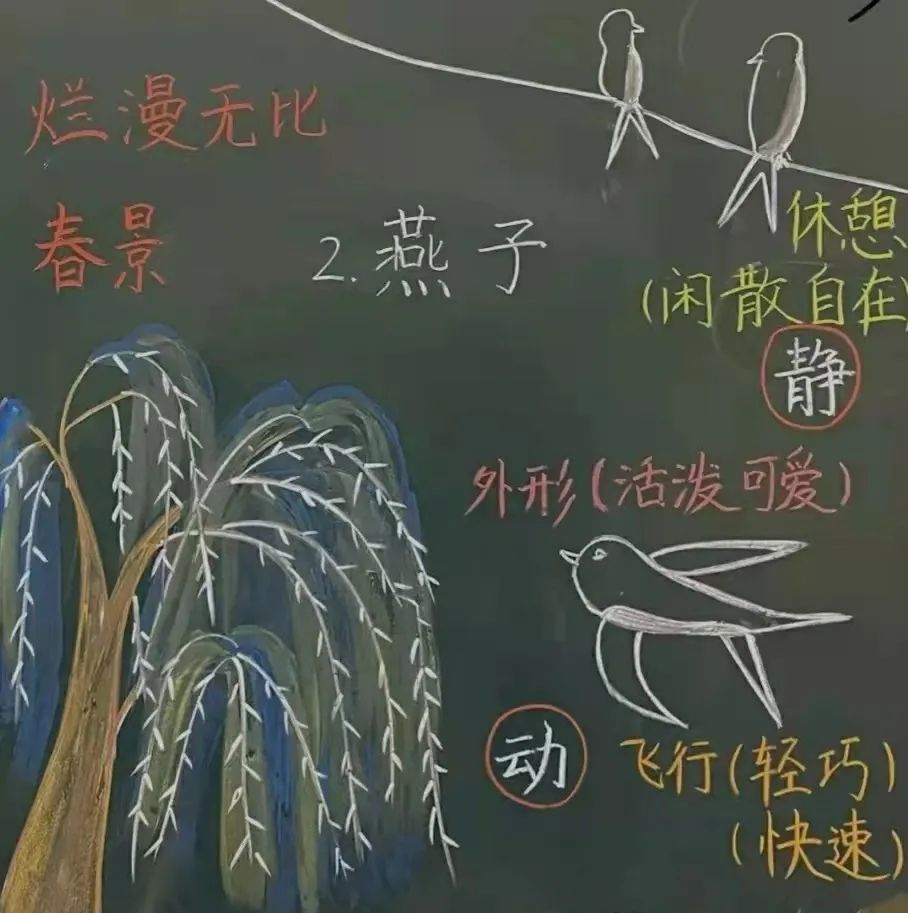 烂漫无比
春景
2.燕子
休憩
(闲散自在)
静
外形(活泼可爱)
动
飞行(轻巧)
(快速)